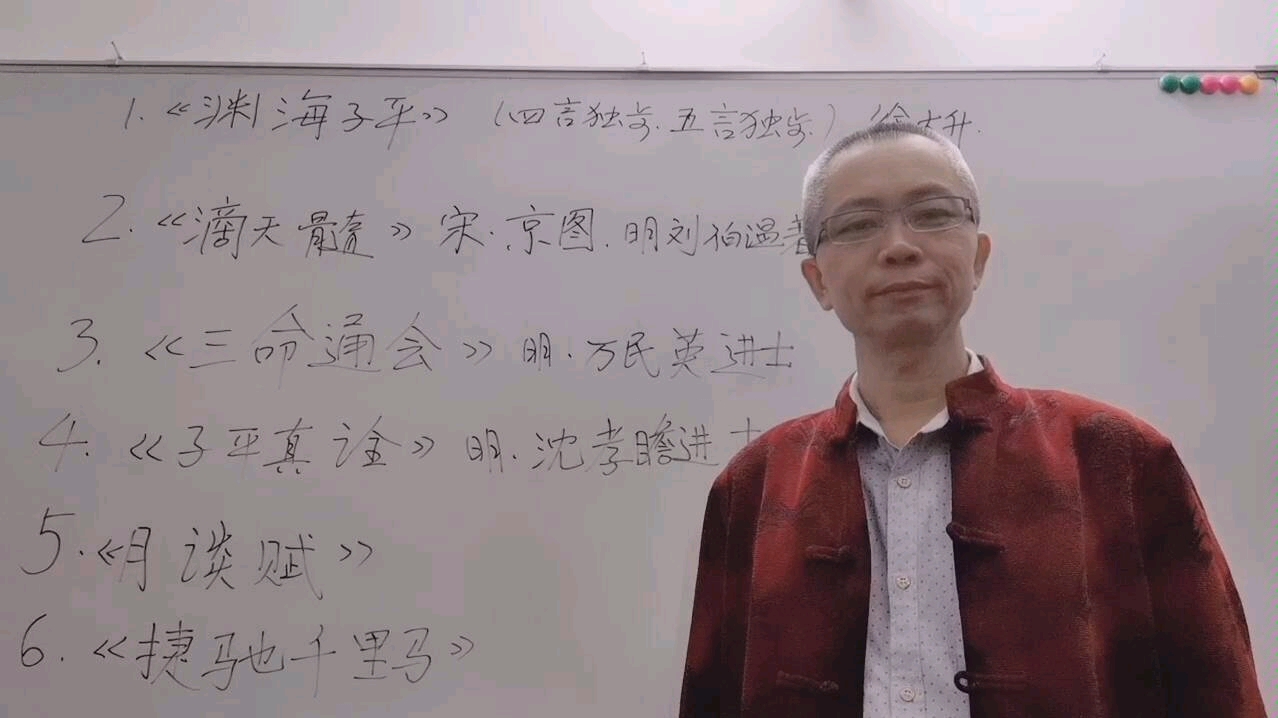 1.《渊海子平》(四言独步.五言独步.)徐大升.
2.《滴天髓》宋.京图.明刘伯温著
3.《三命通会》明.万民英进士
4.《子平真诠》明.沈孝瞻进士
5.《月谈赋》
6.《捷驰千里马》